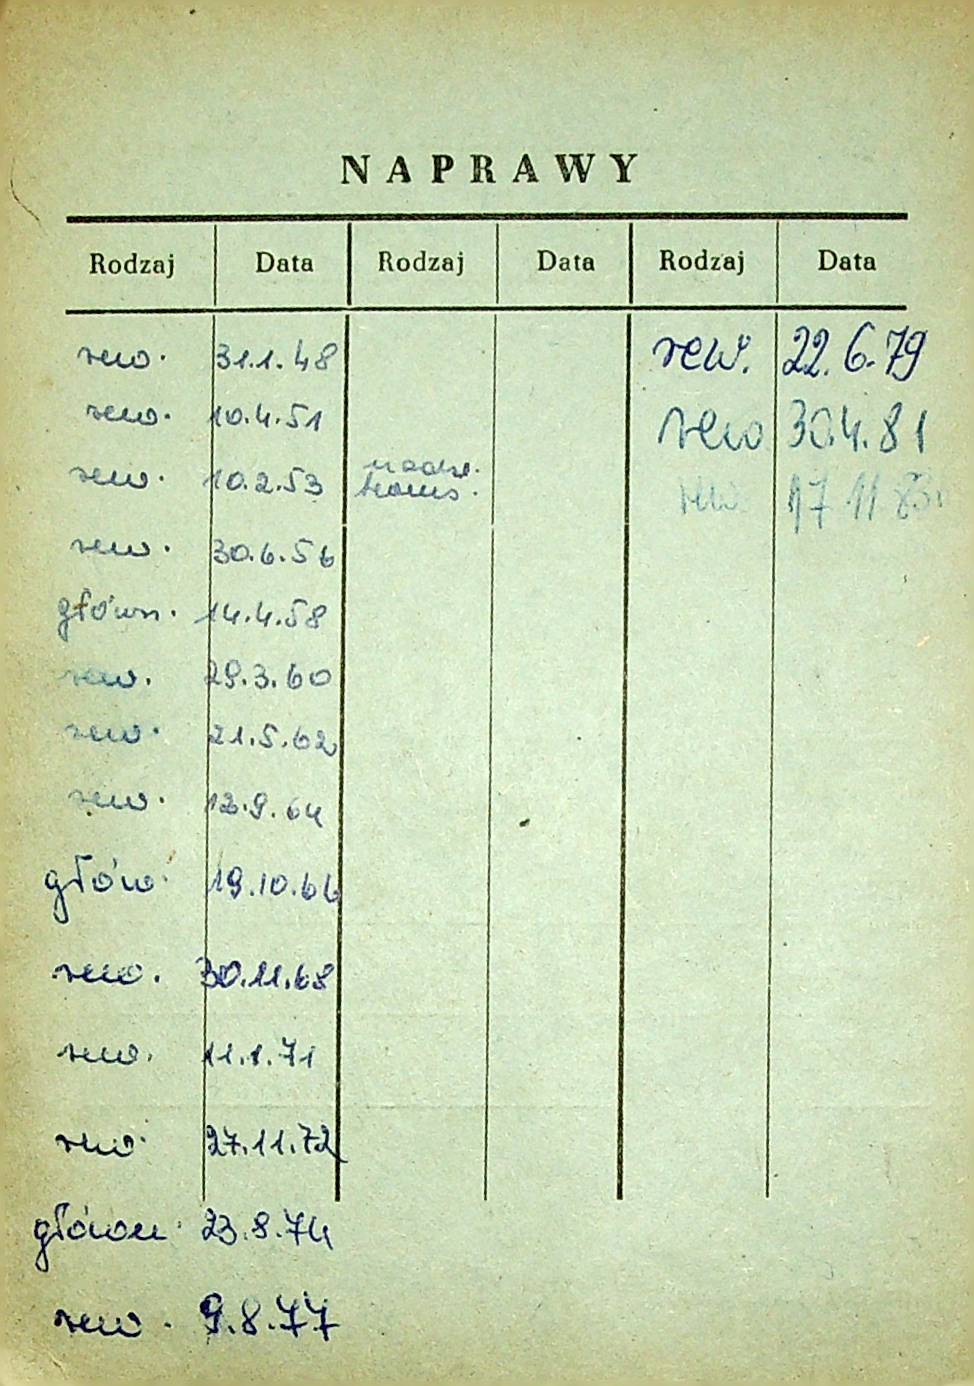 NAPRAWY
Rodzaj Data Rodzaj Data Rodzaj Data
rew. 31.1.48 rew. 22.6.79
rew. 10.4.51 rew 30.4.81
rew. 10.2.53 rew 17 11 83
rew. 30.6.56
główn. 14.4.58
rew. 29.3.60
rew. 21.5.62
rew. 12.9.64
głów. 19.10.66
rew. 30.11.68
rew. 11.1.71
rew. 27.11.72
główn. 23.8.74
rew. 9.8.77